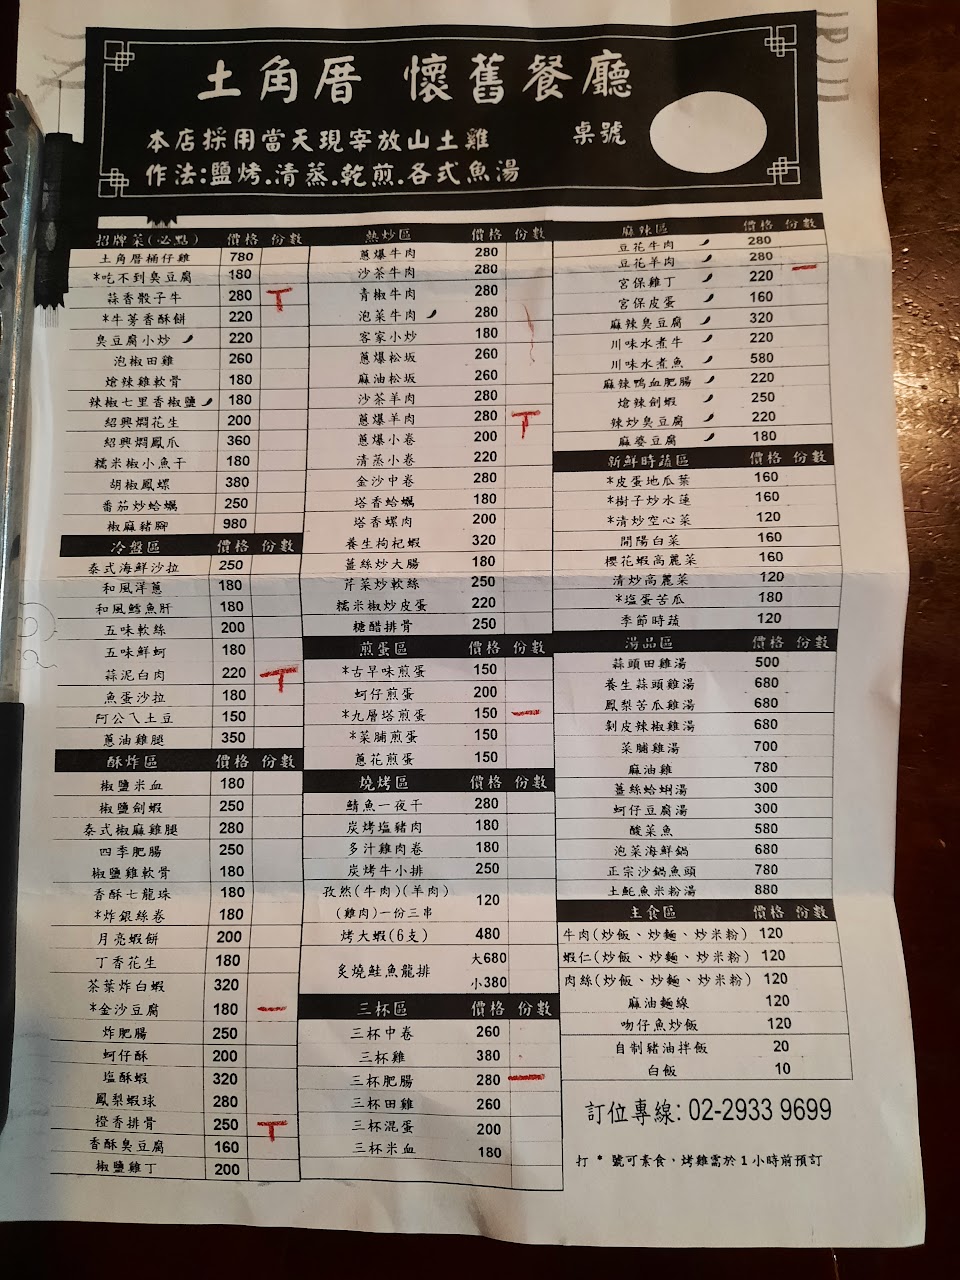 土角厝 懷舊餐廳
本店採用當天現宰放山土雞 桌號
作法:鹽烤.清蒸.乾煎.各式魚湯
招牌菜(必點) 價格 份數
土角厝桶仔雞 780
*吃不到臭豆腐 180
蒜香骰子牛 280 T
*牛蒡香酥餅 220
臭豆腐小炒 220
泡椒田雞 260
熗辣雞軟骨 180
辣椒七里香椒鹽 180
紹興燜花生 200
紹興燜鳳爪 360
糯米椒小魚干 180
胡椒鳳螺 380
番茄炒蛤蠣 250
椒麻豬腳 980
冷盤區 價格 份數
泰式海鮮沙拉 250
和風洋蔥 180
和風鱈魚肝 180
五味軟絲 200
五味鮮蚵 180
蒜泥白肉 220 T
魚蛋沙拉 180
阿公ㄟ土豆 150
蔥油雞腿 350
酥炸區 價格 份數
椒鹽米血 180
椒鹽劍蝦 250
泰式椒麻雞腿 280
四季肥腸 250
椒鹽雞軟骨 180
香酥七龍珠 180
*炸銀絲卷 180
月亮蝦餅 200
丁香花生 180
茶葉炸白蝦 320
*金沙豆腐 180 一
炸肥腸 250
蚵仔酥 200
塩酥蝦 320
鳳梨蝦球 280
橙香排骨 250 T
香酥臭豆腐 160
椒鹽雞丁 200
熱炒區 價格 份數
蔥爆牛肉 280
沙茶牛肉 280
青椒牛肉 280
泡菜牛肉 280
客家小炒 180
蔥爆松坂 260
麻油松坂 260
沙茶羊肉 280
蔥爆羊肉 280 T
蔥爆小卷 200
清蒸小卷 220
金沙中卷 280
塔香蛤蠣 180
塔香螺肉 200
養生枸杞蝦 320
薑絲炒大腸 180
芹菜炒軟絲 250
糯米椒炒皮蛋 220
糖醋排骨 250
煎蛋區 價格 份數
*古早味煎蛋 150
蚵仔煎蛋 200
*九層塔煎蛋 150 一
*菜脯煎蛋 150
蔥花煎蛋 150
燒烤區 價格 份數
鯖魚一夜干 280
炭烤塩豬肉 180
多汁雞肉卷 180
炭烤牛小排 250
孜然(牛肉)(羊肉)
(雞肉)一份三串 120
烤大蝦(6支) 480
炙燒鮭魚龍排 大680
小380
三杯區 價格 份數
三杯中卷 260
三杯雞 380
三杯肥腸 280 一
三杯田雞 260
三杯混蛋 200
三杯米血 180
麻辣區 價格 份數
豆花牛肉 280
豆花羊肉 280
宮保雞丁 220 一
宮保皮蛋 160
麻辣臭豆腐 320
川味水煮牛 220
川味水煮魚 580
麻辣鴨血肥腸 220
熗辣劍蝦 250
辣炒臭豆腐 220
麻婆豆腐 180
新鮮時蔬區 價格 份數
*皮蛋地瓜葉 160
*樹子炒水蓮 160
*清炒空心菜 120
開陽白菜 160
櫻花蝦高麗菜 160
清炒高麗菜 120
*塩蛋苦瓜 180
季節時蔬 120
湯品區 價格 份數
蒜頭田雞湯 500
養生蒜頭雞湯 680
鳳梨苦瓜雞湯 680
剝皮辣椒雞湯 680
菜脯雞湯 700
麻油雞 780
薑絲蛤蜊湯 300
蚵仔豆腐湯 300
酸菜魚 580
泡菜海鮮鍋 680
正宗沙鍋魚頭 780
土魠魚米粉湯 880
主食區 價格 份數
牛肉(炒飯、炒麵、炒米粉) 120
蝦仁(炒飯、炒麵、炒米粉) 120
肉絲(炒飯、炒麵、炒米粉) 120
麻油麵線 120
吻仔魚炒飯 120
自制豬油拌飯 20
白飯 10
訂位專線: 02-2933 9699
打 * 號可素食, 烤雞需於1小時前預訂